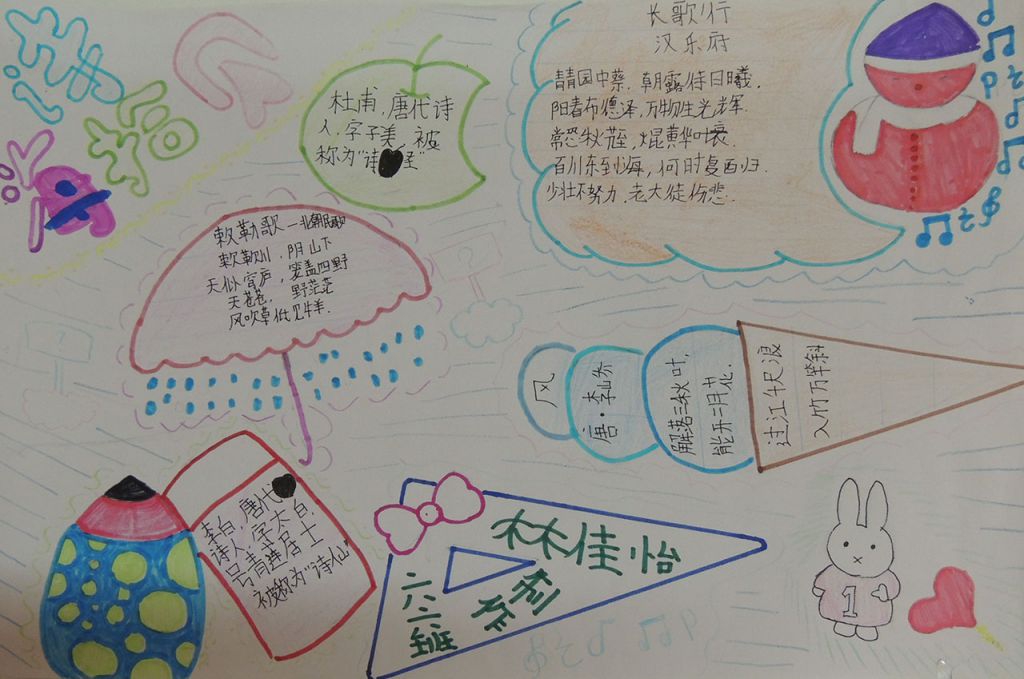 杜甫，唐代诗
人，字子美，被
称为“诗圣”
长歌行
汉乐府
青青园中葵，朝露待日曦.
阳春布德泽，万物生光辉.
常恐秋节至，焜黄华叶衰.
百川东到海，何时复西归.
少壮不努力，老大徒伤悲.
敕勒歌—北朝民歌
敕勒川，阴山下
天似穹庐，笼盖四野
天苍苍，野茫茫
风吹草低见牛羊.
风
唐·李峤
解落三秋叶，
能开二月花.
过江千尺浪
入竹万竿斜
李白，唐代
诗人，字太白，
号青莲居士
被称为“诗仙”
林佳怡
六二班
1